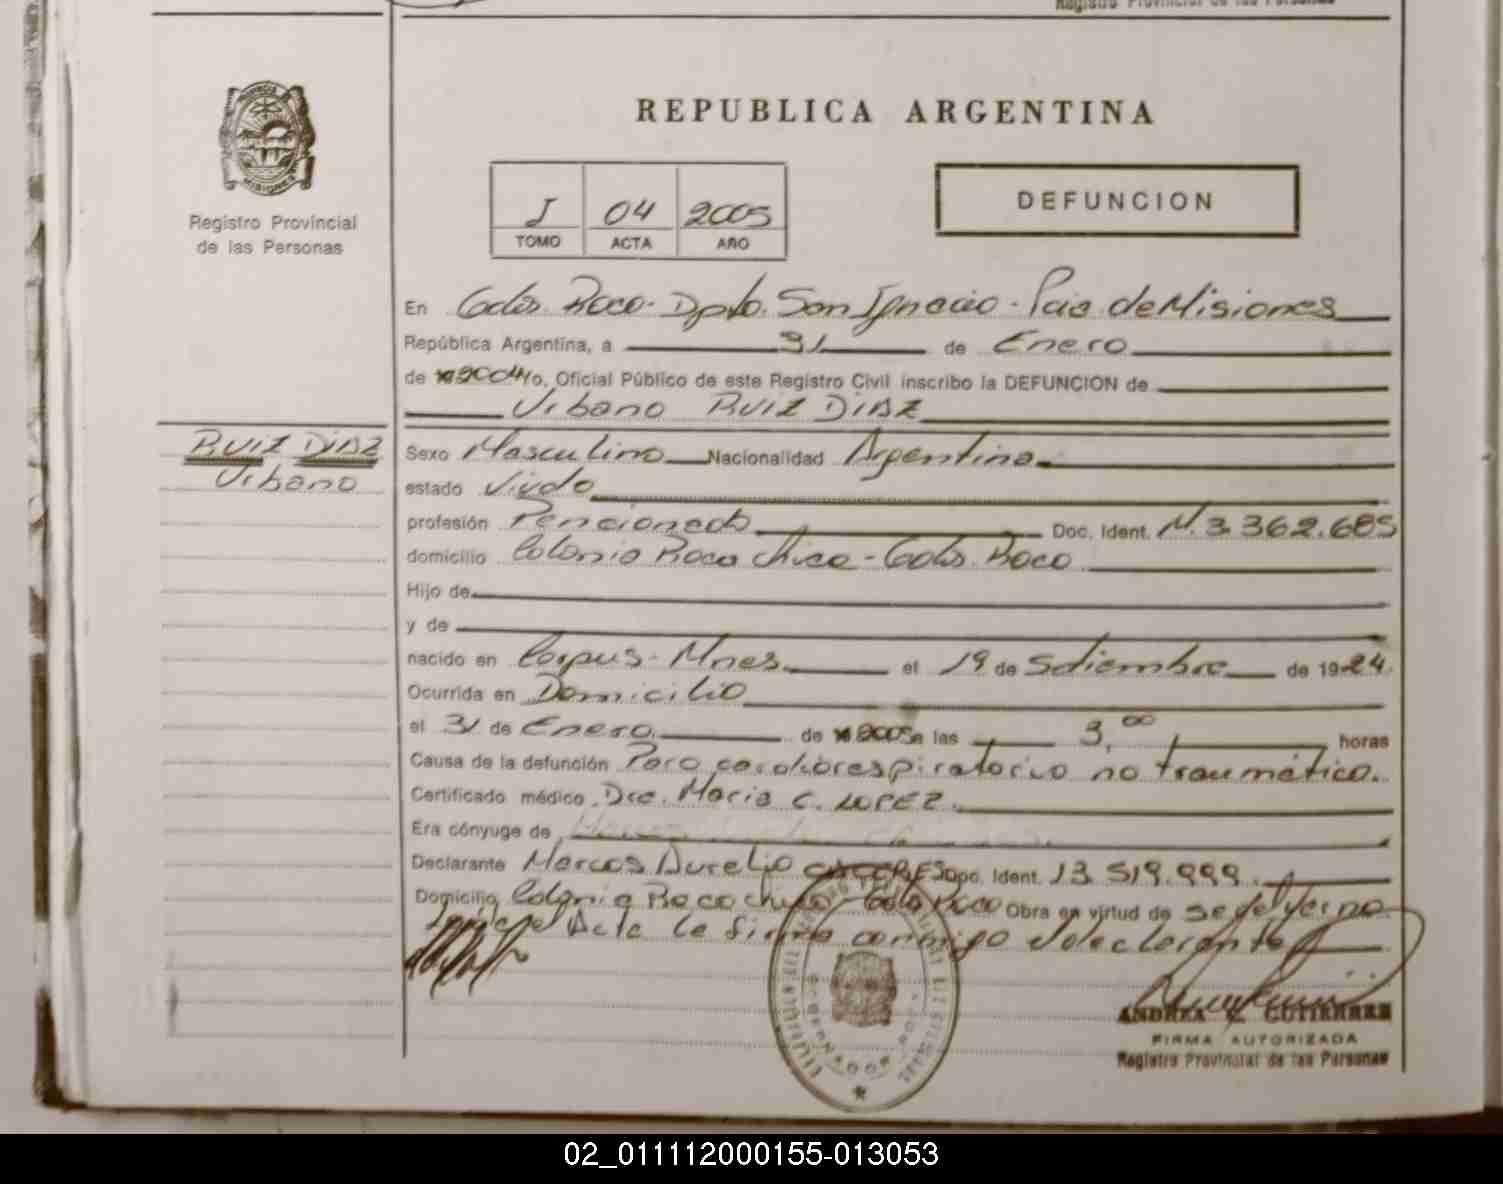 Registro Provincial de las Personas
REPUBLICA ARGENTINA
Registro Provincial
de las Personas
I 04 2005
TOMO ACTA AÑO
DEFUNCION
En Gdor. Roca - Dpto. San Ignacio - Pcia de Misiones
República Argentina, a 31 de Enero
de yo, Oficial Público de este Registro Civil inscribo la DEFUNCION de
Urbano RUIZ DIAZ
RUIZ DIAZ
Urbano
Sexo Masculino Nacionalidad Argentina
estado Viudo
profesión Pencionado Doc. Ident. M. 3.362.685
domicilio Colonia Roca Chica - Gdor. Roca
Hijo de
y de
nacido en Corpus - Mnes el 19 de Setiembre de 1924
Ocurrida en Domicilio
el 31 de Enero de 2005 a las 3,00 horas
Causa de la defunción Paro cardiorespiratorio no traumático.
Certificado médico Dra. Maria C. LOPEZ
Era cónyuge de
Declarante Marcos Aurelio CACERES Doc. Ident. 13.519.999
Domicilio Colonia Roca chica - Gdor Roca Obra en virtud de
el Acta la firma conmigo el declarante
GOBERNADOR ROCA
ANDREA GUTIERREZ
FIRMA AUTORIZADA
Registro Provincial de las Personas
02_011112000155-013053